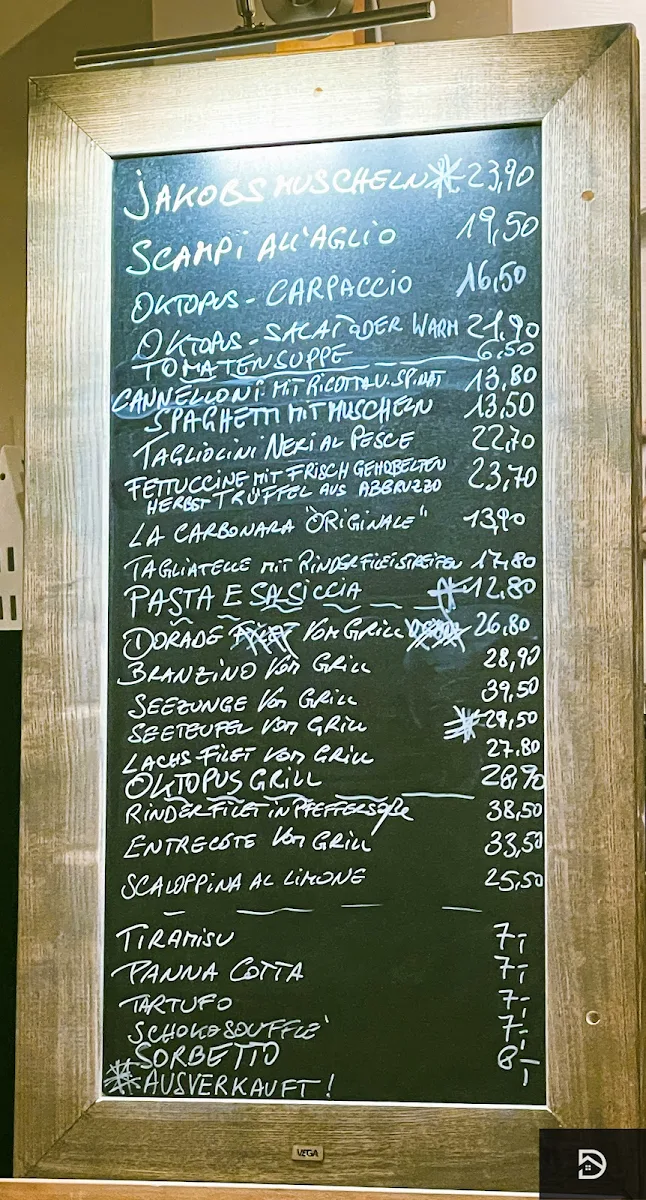 JAKOBSMUSCHELN * 23,90
SCAMPI ALL'AGLIO 19,50
OKTOPUS - CARPACCIO 16,50
OKTOPUS - SALAT ODER WARM 21,90
TOMATENSUPPE 6,50
CANNELLONI MIT RICOTTA U. SPINAT 13,80
SPAGHETTI MIT MUSCHELN 13,50
TAGLIOLINI NERI AL PESCE 22,70
FETTUCCINE MIT FRISCH GEHOBELTEN 23,70
HERBST TRÜFFEL AUS ABBRUZZO
LA CARBONARA "ORIGINALE" 13,90
TAGLIATELLE MIT RINDERFILEISTREIFEN 17,80
PASTA E SALSICCIA * 12,80
DORADE FILET VOM GRILL 26,80
BRANZINO VOM GRILL 28,90
SEEZUNGE VOM GRILL 39,50
SEETEUFEL VOM GRILL * 29,50
LACHS-FILET VOM GRILL 27,80
OKTOPUS GRILL 28,90
RINDERFILET IN PFEFFERSOßE 38,50
ENTRECOTE VOM GRILL 33,50
SCALOPPINA AL LIMONE 25,50
TIRAMISU 7,-
PANNA COTTA 7,-
TARTUFO 7,-
SCHOKOSOUFFLE' 7,-
SORBETTO 8,-
* AUSVERKAUFT!
VEGA